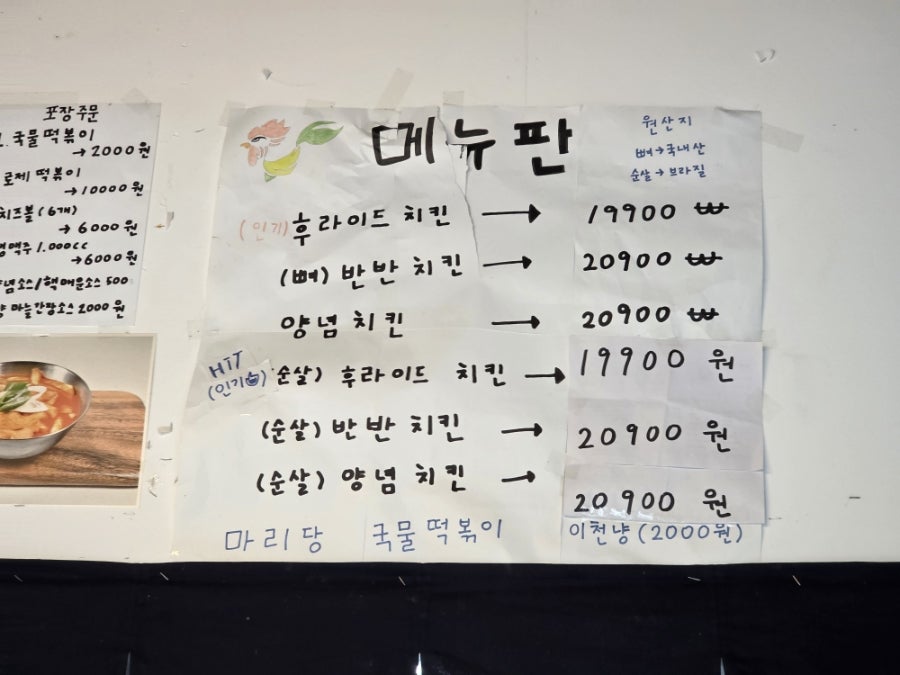 포장주문
1. 국물떡볶이
→ 2000원
로제 떡볶이
→ 10000원
치즈볼 (6개)
→ 6000원
생맥주 1.000cc
→ 6000원
양념소스/핵매운소스 500
마늘간장소스 2000원
메뉴판
원산지
뼈→국내산
순살→브라질
(인기) 후라이드 치킨 → 19900 ₩
(뼈) 반반치킨 → 20900 ₩
양념치킨 → 20900 ₩
HIT
(인기) 순살) 후라이드 치킨 → 19900 원
(순살) 반반치킨 → 20900 원
(순살) 양념치킨 → 20900 원
마리당 국물떡볶이 이천냥(2000원)